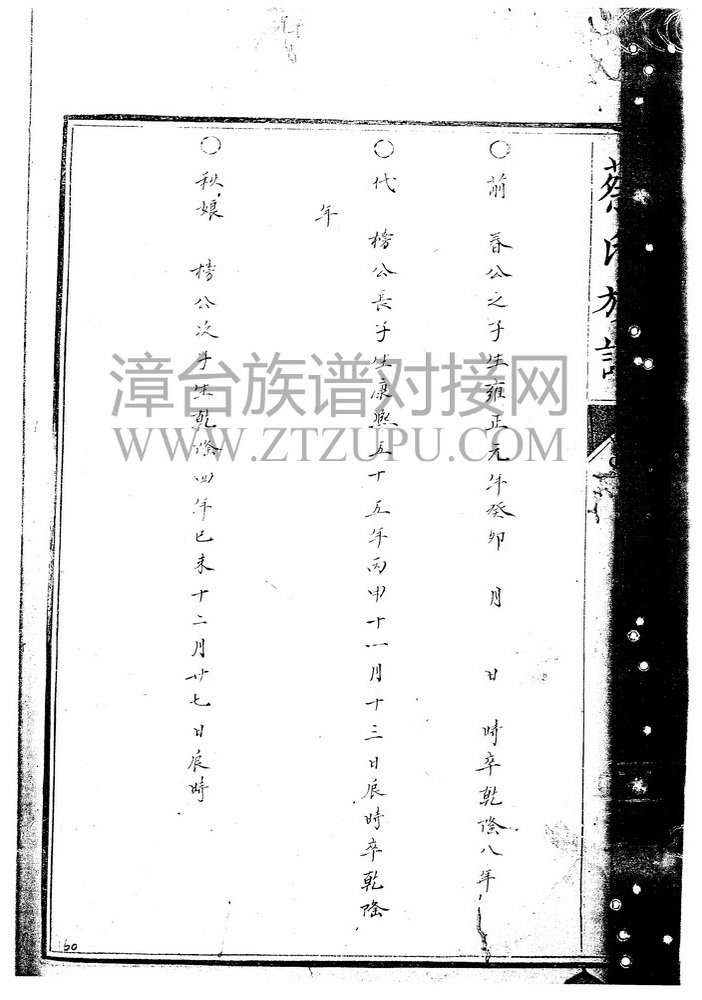 蔡氏族譜
〇萠 春公之子生雍正元年癸卯 月 日 時卒乾隆八年
〇代 榜公長子生康熙五十五年丙申十一月十三日辰時卒乾隆
年
〇秋娘 榜公次子生乾隆四年己未十二月廿七日辰時
60
漳台族谱对接网
WWW.ZTZUPU.COM